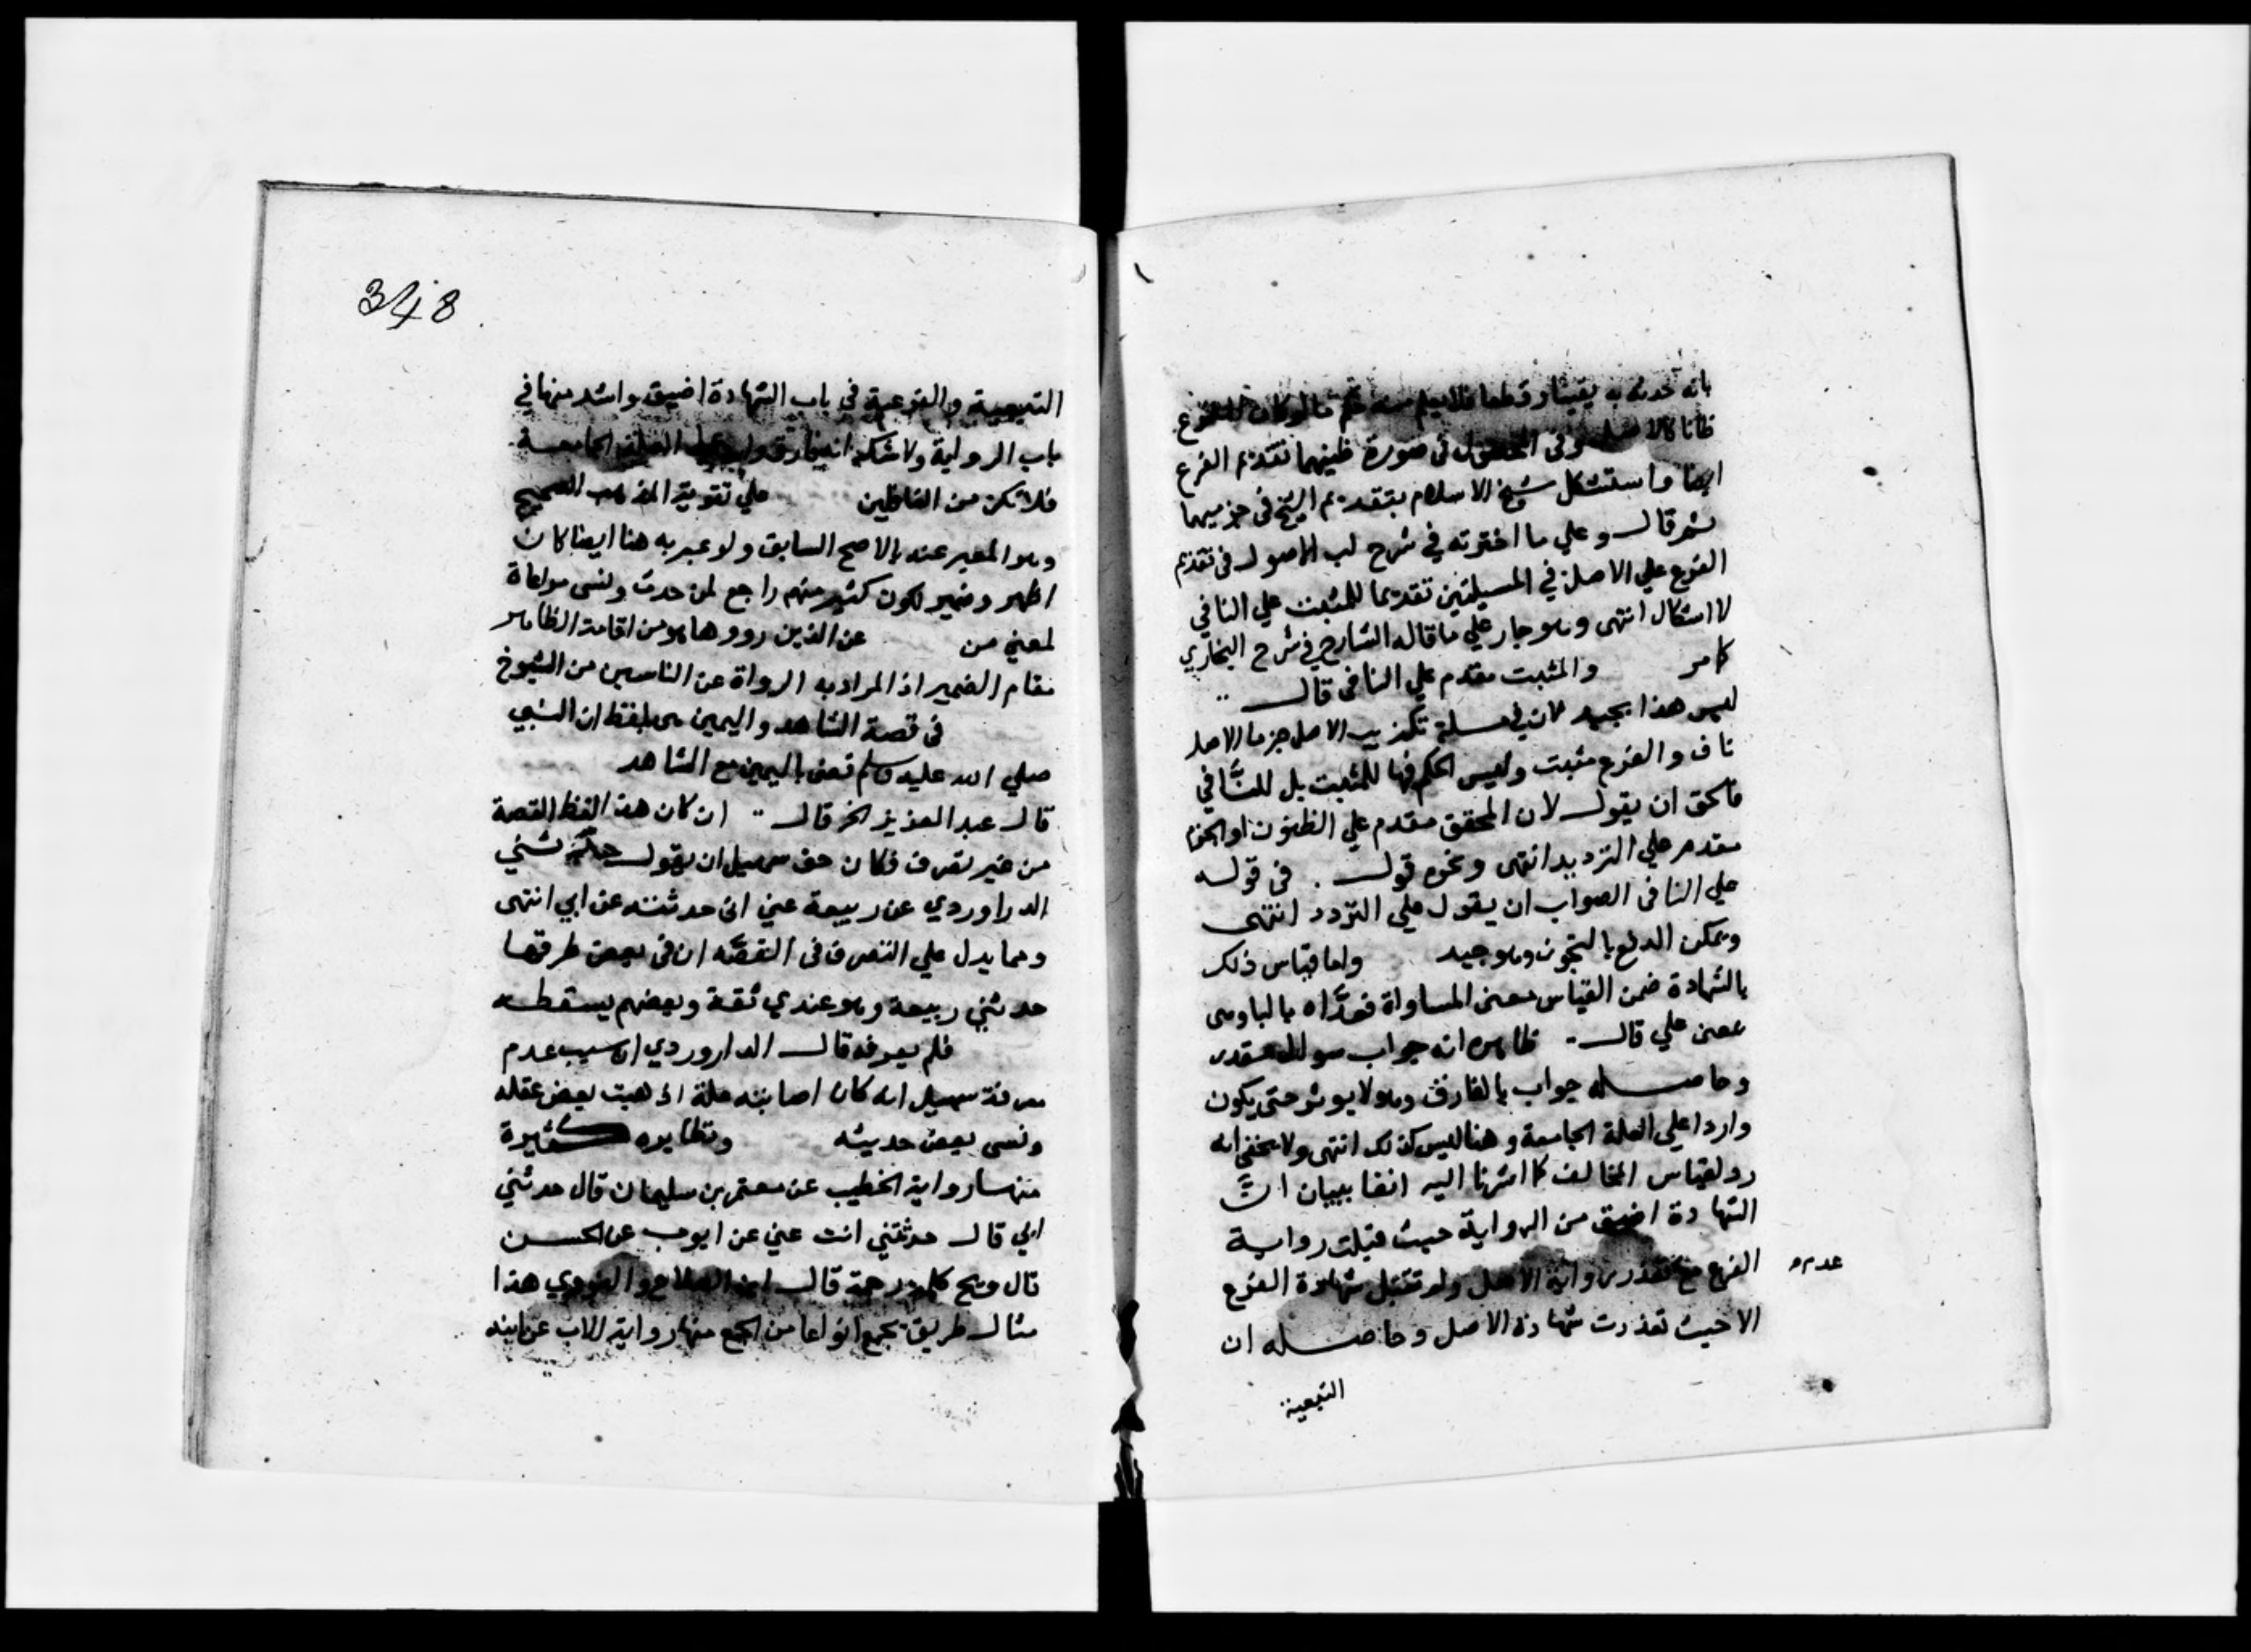 بانه حدثه به يقينا وقطعا فلا يعلم منه حكم ما لو كان الفرع
ظانا كالاصل وفى المحصول فى صورة ظنيهما تقديم الفرع
ايضا واستشكل شيخ الاسلام بتقديم الشيخ فى جزميهما
ثم قال وعلي ما اخترته في شرح لب الاصول فى تقديم
الفرع علي الاصل في المسيلتين تقديما للمثبت علي النافي
لا اشكال انتهى وهو جار علي ما قاله الشارح في شرح البخاري
كما مر والمثبت مقدم علي النافى قال
ليس هذا بجيد لان في مسئلة تكذيب الاصل جزما الاصل
ناف والفرع مثبت وليس الحكم فيها للمثبت بل للنَّافي
فالحق ان يقول لان المحقق مقدم علي المظنون او الجزم
مقدم علي الترديد انتهى ونحوه قول فى قوله
علي النافى الصواب ان يقول علي التردد انتهى
ويمكن الدفع بالتجوز وهو جيد واما قياس ذلك
بالشهادة ضمن القياس معنى المساواة فعدَّاه بالبا وهى
بمعنى علي قال ظاهره انه جواب سوال مقدر
وحاصله جواب بالفارق وهو لا يوثر حتى يكون
واردا علي العلة الجامعة وهنا ليس كذلك انتهى ولا يخفى انه
رد لقياس المخالف كما اشرنا اليه انفا ببيان انَّ
الشهادة اضيق من الرواية حيث قبلت رواية
الفرع مع تعذر رواية الاصل ولم تقبل شهادة الفرع
عدم
الا حيث تعذرت شهادة الاصل وحاصله ان
التبعية
348
التبعية والفرعية فى باب الشهادة اضيق واشد منها في
باب الرواية ولا شك انه فارق وارد على العلة الجامعة
فلا تكن من الغافلين علي تقوية المذهب الصحيح
وهو المعبر عنه بالاصح السابق ولو عبر به هنا ايضا كان
اظهر وضمير لكون كثير منهم راجع لمن حدث ونسى مراعاة
لمعني من عن الذين رووها هو من اقامة الظاهر
مقام الضمير اذ المراد به الرواة عن الناسين من الشيوخ
فى قصة الشاهد واليمين هى بلفظ ان النبي
صلي الله عليه وسلم قضى باليمين مع الشاهد
قال عبد العزيز الخ قال ان كان هذا لفظ القصة
من غير تصرف فكان حق سهيل ان يقول حدثني
الدراوردي عن ربيعة عني انى حدثته عن ابي انتهى
ومما يدل علي التصرف فى القصَّة ان فى بعض طرقها
حدثني ربيعة وهو عندي ثقة وبعضهم يسقطه
فلم يعرفه قال الداروردي ان سبب عدم
معرفة سهيل انه كان اصابته علة اذهبت بعض عقله
ونسى بعض حديثه ونظايره كثيرة
منها رواية الخطيب عن معتمر بن سليمان قال حدثني
ابي قال حدثتني انت عني عن ايوب عن الحسن
قال ويح كلمة رحمة قال ابن الصلاح والنووي هذا
مثال طريق يجمع انواعا من الجمع منها رواية الاب عن ابنه